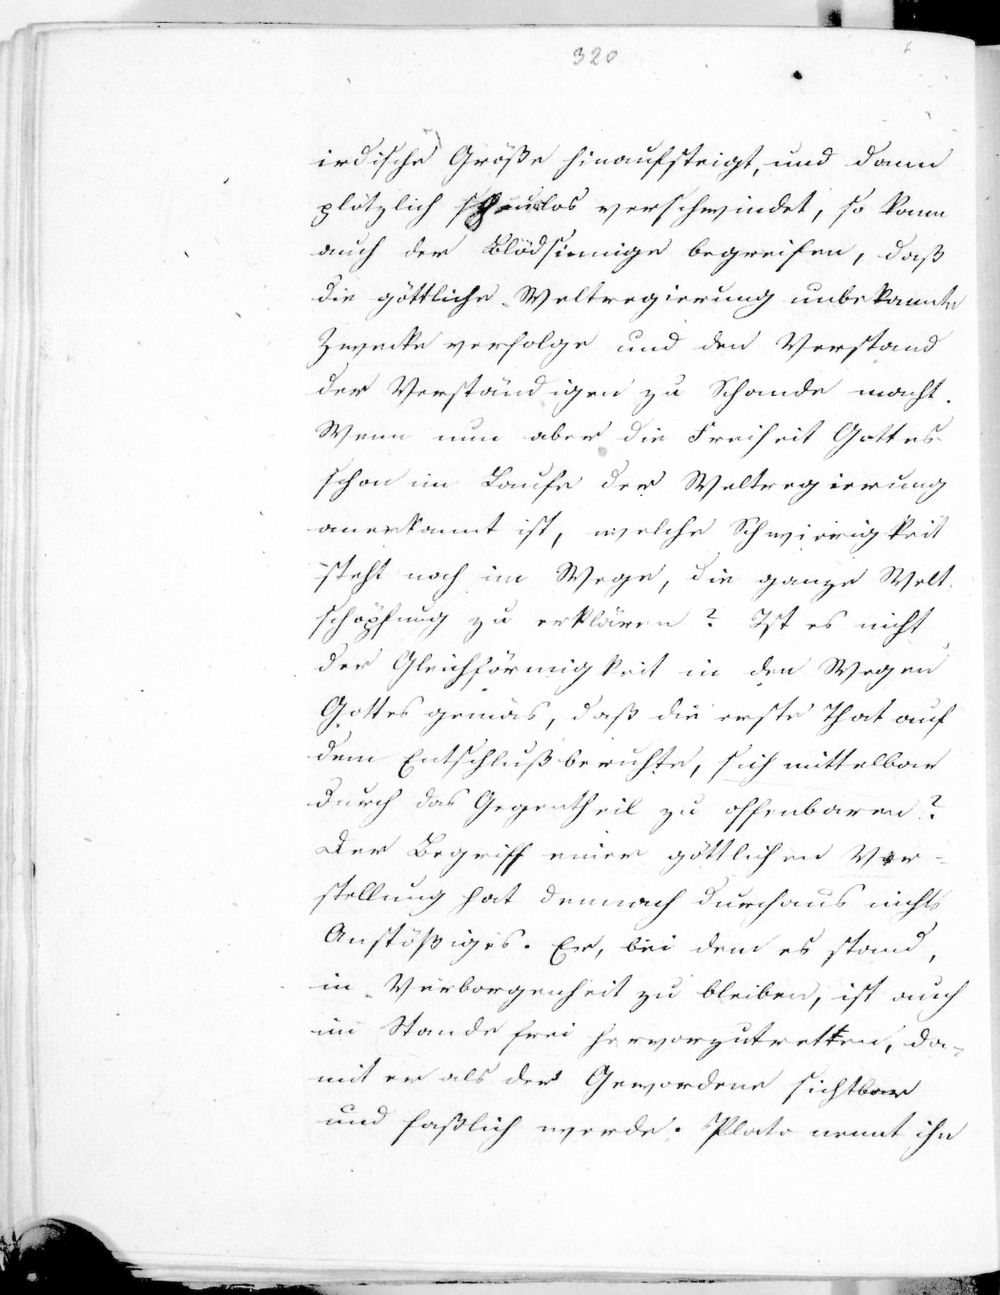 320
irdische Größe hinaufsteigt, und dann
plötzlich spurlos verschwindet, so kann
auch der Blödsinnige begreifen, daß
die göttliche Weltregierung unbekannte
Zwecke verfolge und den Verstand
der Verständigen zu Schande macht.
Wenn nun aber die Freiheit Gottes
schon im Laufe der Weltregierung
anerkannt ist, welche Schwierigkeit
steht noch im Wege, die ganze Welt-
schöpfung zu erklären? Ist es nicht
der Gleichförmigkeit in den Wegen
Gottes gemäs, daß die erste That auf
dem Entschluß beruhte, sich mittelbar
durch das Gegentheil zu offenbaren?
Der Begriff einer göttlichen Ver-
stellung hat demnach durchaus nichts
Anstößiges. Er, bei dem es stand,
in Verborgenheit zu bleiben, ist auch
im Stande frei hervorzutretten, da-
mit er als der Gewordene sichtbar
und faßlich werde. Plato nennt ihn